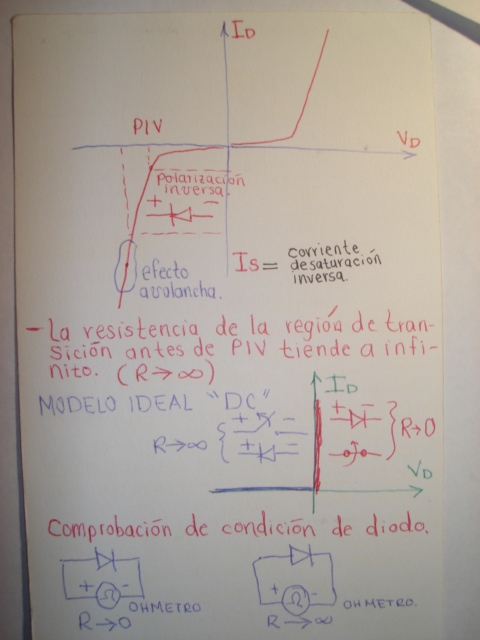 I_D
PIV
V_D
polarización
inversa.
+ −
efecto
avalancha.
Is = corriente
desaturación
inversa.
- La resistencia de la región de tran-
sición antes de PIV tiende a infi-
nito. (R→∞)
MODELO IDEAL "DC"
I_D
+ −
+ −
R→∞
+ −
R→0
V_D
Comprobación de condición de diodo.
+ Ω -
OHMETRO
R→0
+ Ω -
OHMETRO.
R→∞